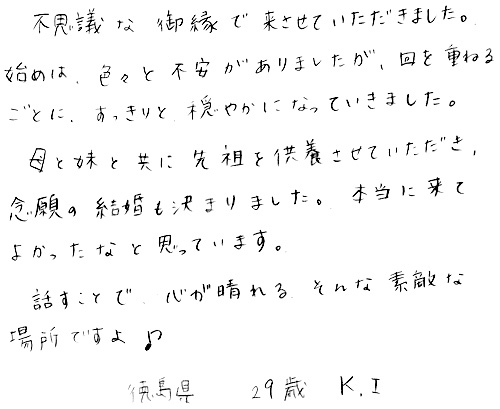 不思議な御縁で来させていただきました。
始めは、色々と不安がありましたが、回を重ねる
ごとに、すっきりと穏やかになっていきました。
母と妹と共に先祖を供養させていただき、
念願の結婚も決まりました。本当に来て
よかったなと思っています。
話すことで、心が晴れる、そんな素敵な
場所ですよ♪
徳島県 29歳 K.I